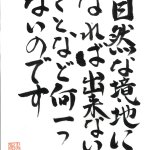 自然な境地に
なれば出来ない
ことなど何一つ
ないのです